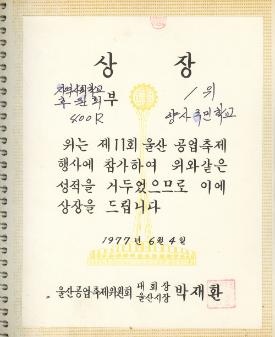 상 장
지역사회학교
후원회부 1위
400R 향사국민학교
위는 제11회 울산 공업축제
행사에 참가하여 위와같은
성적을 거두었으므로 이에
상장을 드립니다
1977년 6월 4일
울산공업축제위원회 대회장 울산시장 박재환